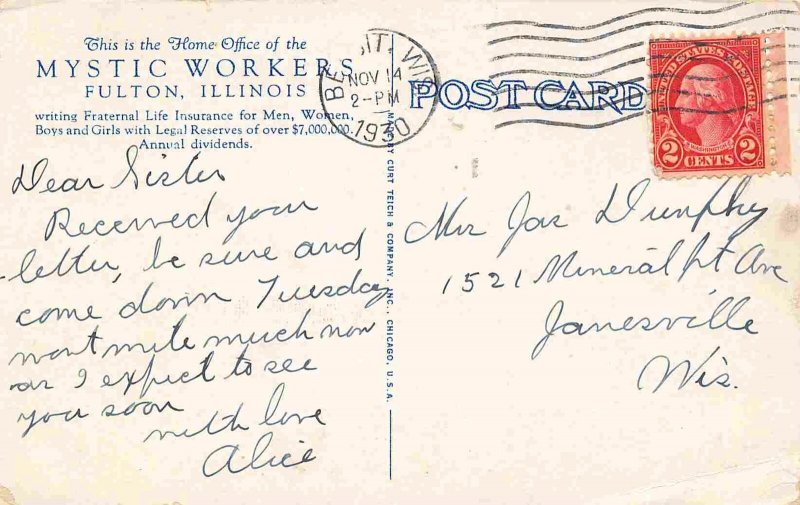 This is the Home Office of the
MYSTIC WORKERS
FULTON, ILLINOIS
writing Fraternal Life Insurance for Men, Women,
Boys and Girls with Legal Reserves of over $7,000,000.
Annual dividends.
Dear Sister
Received your
letter, be sure and
come down Tuesday
wont write much now
as I expect to see
you soon
with love
Alice
MADE BY CURT TEICH & COMPANY, INC., CHICAGO, U.S.A.
BELOIT, WIS.
NOV 14
2-PM
1930
POST CARD
UNITED STATES POSTAGE
WASHINGTON
2 CENTS 2
Mrs Jas Dunphy
1521 Mineral Pt Ave
Janesville
Wis.